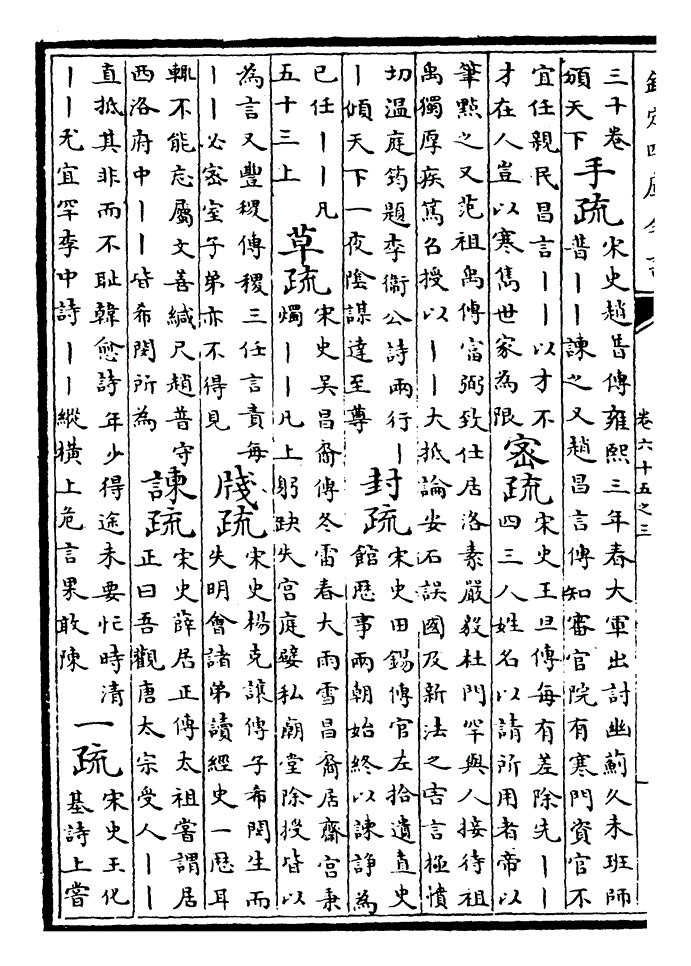 欽定四庫全書
卷六十五之三
三十卷
頌天下
手疏
宋史趙普傳雍熙三年春大軍出討幽薊久未班師
普丨丨諫之又趙昌言傳知審官院有寒門資官不
宜任親民昌言丨丨以才不
才在人豈以寒雋世家為限
密疏
宋史王旦傳每有差除先丨丨
四三人姓名以請所用者帝以
筆點之又范祖禹傳富弼致仕居洛素嚴毅杜門罕與人接待祖
禹獨厚疾篤召授以丨丨大抵論安石誤國及新法之害言極憤
切温庭筠題李衞公詩兩行丨
丨傾天下一夜隂謀達至尊
封疏
宋史田錫傳官左拾遺直史
館歴事兩朝始終以諫諍為
已任丨丨凡
五十三上
草疏
宋史吳昌裔傳冬雷春大雨雪昌裔居齋宫秉
燭丨丨凡上躬缺失宫庭嬖私廟堂除授皆以
為言又豐稷傳稷三任言責每
丨丨必密室子弟亦不得見
牋疏
宋史楊克讓傳子希閔生而
失明會諸弟讀經史一歴耳
輒不能忘屬文善緘尺趙普守
西洛府中丨丨皆希閔所為
諫疏
宋史薛居正傳太祖嘗謂居
正曰吾觀唐太宗受人丨丨
直抵其非而不耻韓愈詩年少得途未要忙時清
丨丨尤宜罕李中詩丨丨縱橫上危言果敢陳
一疏
宋史王化
基詩上嘗